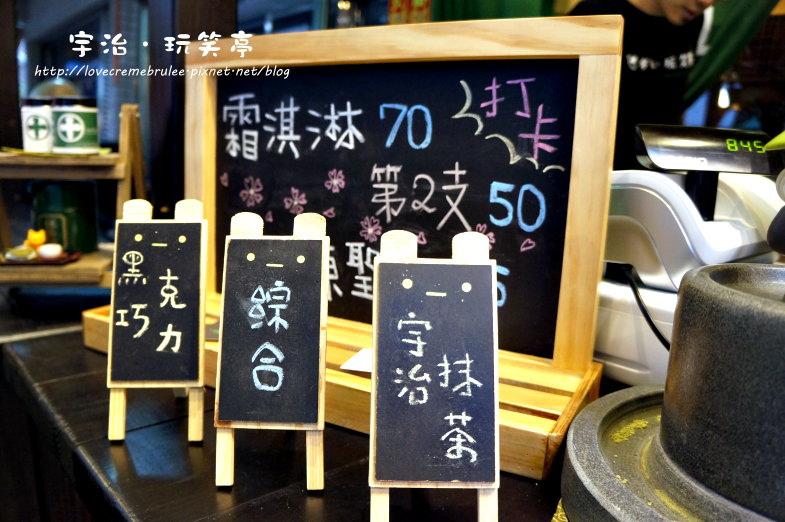 宇治·玩笑亭
http://lovecremebrulee.pixnet.net/blog
霜淇淋 70
打卡
第2支 50
聖
845
黑克巧力
綜合
宇治抹茶